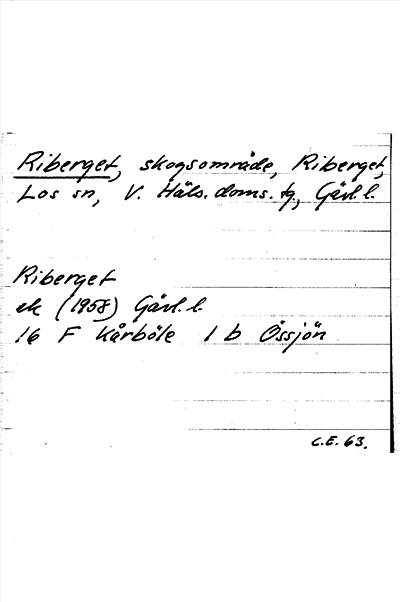 Riberget, skogsområde, Riberget,
Los sn, V. Häls. doms. tg, Gävl. l.
Riberget
ek (1958) Gävl. l.
16 F Kårböle 1 b Össjön
C.E. 63.